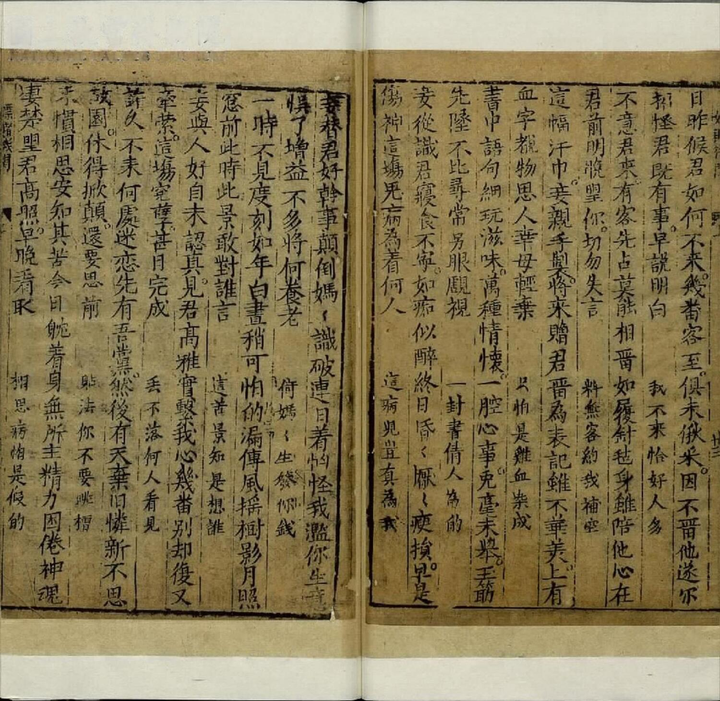 日昨候君如何不來。幾番客至。俱未俶采。因不畱他遂尔
相怪君既有事。早說明白 我不來恰好人多
不意君來。有客先占莫能相畱如履針毡身雖陪他心在
君前明晚望你。切勿失言 料無客約我補空
這幅汗巾。妾親手製將來贈君畱為表記雖不華美。上有
血字覩物思人幸毋輕棄 只怕是雞血染成
書中語句細玩滋味。萬種情懷。一腔心事兎毫未舉。玉筯
先墜不比尋常另眼覷視 一封書倩人寫的
妾從識君寢食不寧。如痴似醉終日昏〱懨〱瘦損。早是
傷神這場鬼病為着何人 這病兒豈真為我
妾替君好幹事顛倒媽〱識破連日着惱怪我濫你生意
悞了增益不多將何養老 媽〱生發你錢
一時不見度刻如年白晝稍可怕的漏傳風搖樹影月照
窓前此時此景敢對誰言 這苦景知是想誰
妾與人好自未認真。見君高雅實繫我心幾番別却復又
牽縈。這場寃孽甚日完成 丟不落何人看見
許久不來何處迷恋先有吾黨然後有天棄旧憐新不思
故園休得掀顛還要思前 法你不要跳槽
未慣相思安知其苦今日躭着身無所主精力困倦神魂
凄楚望君高照。早晚看取 相思病怕是假的